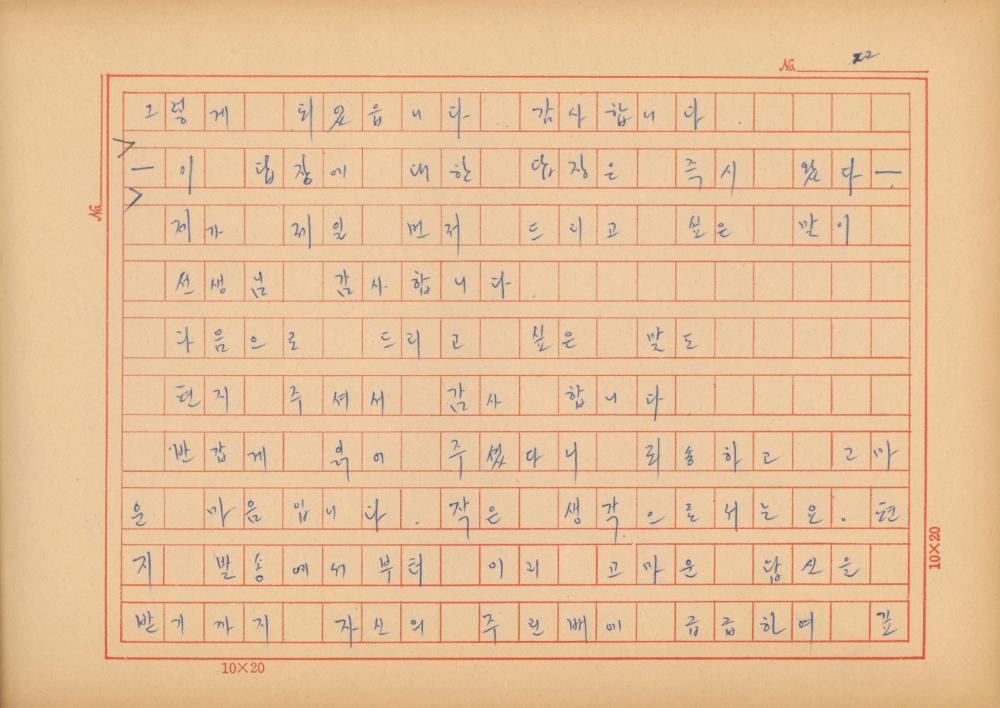 No. 22
그렇게 되였읍니다. 감사합니다
— 이 답장에 대한 답장은 즉시 왔다 —
제가 제일 먼저 드리고 싶은 말이
선생님 감사합니다.
다음으로 드리고 싶은 말도
편지 주셔서 감사 합니다
반갑게 읽어 주셨다니 죄송하고 고마
운 마음입니다. 작은 생각으로서는요. 편
지 발송에서부터 이리 고마운 답신을
받기까지 자신의 주린배에 급급하여 깊
No.
10×20
10×20